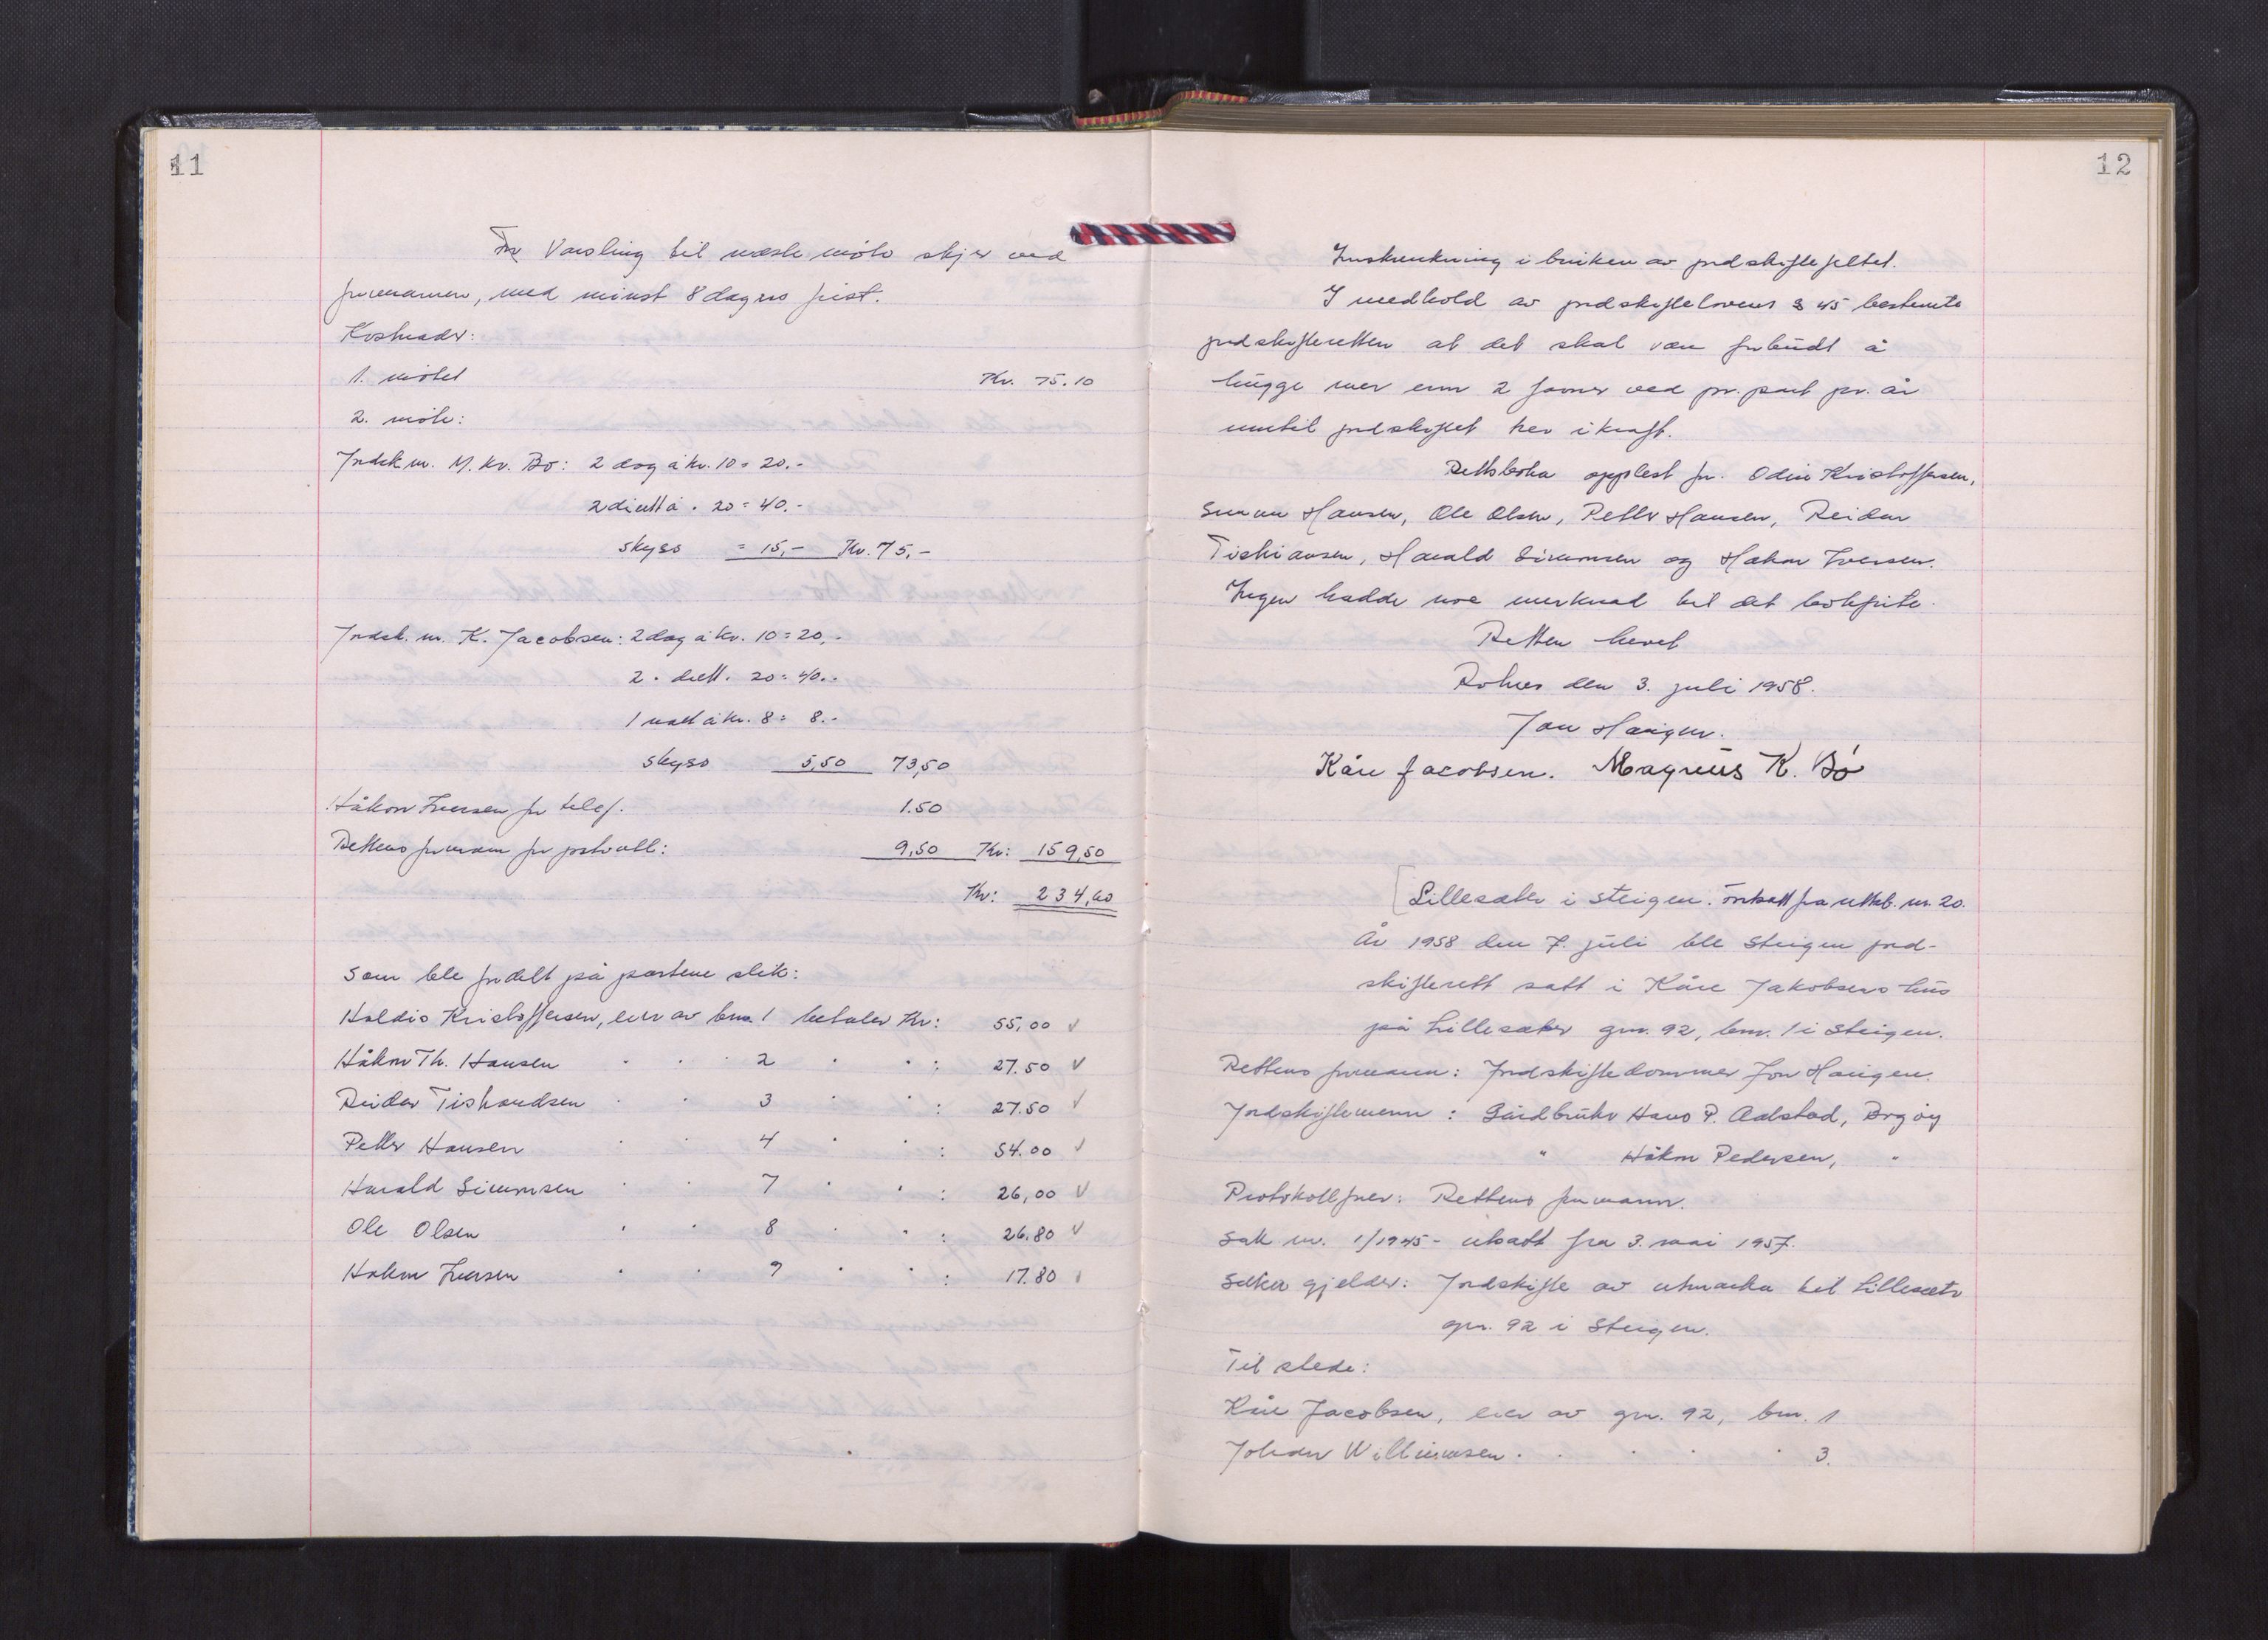 11
Varsling til neste møte skjer ved
formannen, med minst 8 dagers frist.
Kostnader:
1. møtet Kr. 75.10
2. møte:
Jordsk.m. M. Kr. Bø: 2 dag á kr. 10 = 20.-
2 diett á " 20 = 40.-
skyss = 15,- Kr. 75,-
Jordsk. m. K. Jacobsen: 2 dag á kr. 10 = 20.-
2 " diett " 20 = 40.-
1 natt á kr. 8 = 8.-
skyss 5,50 73,50
Håkon Iversen for telef. 1.50
Rettens formann for : 9,50 Kr: 159,50
Kr: 234,60
som ble fordelt på partene slik:
Haldis Kristoffersen, eier av bnr. 1 betaler Kr: 55,00 v
Håkon Th. Hansen " " " 2 " " : 27.50 v
Reidar Tishandsen " " 3 " " : 27.50 v
Petter Hansen " " 4 " " : 54.00 v
Harald Simonsen " " 7 " " : 26,00 v
Ole Olsen " " 8 " " : 26.80 v
Håkon Iversen " " 9 " " : 17.80 v
12
Innskrenkning i bruken av jordskiftefeltet.
I medhold av jordskiftelovens § 45 bestemte
jordskifteretten at det skal være forbudt å
hugge mer enn 2 favner ved pr. part pr. år
inntil jordskiftet trer i kraft.
Rettsboka opplest for Odin Kristoffersen,
Hansen, Ole Olsen, Petter Hansen, Reidar
Tishiansen, Harald Simonsen og Håkon Iversen.
Ingen hadde noe merknad til det bokførte.
Retten hevet
den 3. juli 1958.
Jon Haugen.
Kåre Jacobsen. Magnus K. Bø
[Lillesæter i Steigen. Omsatt fra rettsb. nr. 20.
År 1958 den 7. juli ble Steigen jord-
skifterett satt i Kåre Jakobsens hus
på Lillesæter gnr. 92, bnr. 1 i Steigen.
Rettens formann: Jordskiftedommer Jon Haugen.
Jordskiftemenn: Gårdbruker Hans P. Aalstad, Bogøy
" Håkon Pedersen, "
Protokollfører: Rettens formann.
Sak nr. 1/1945 - utsatt fra 3. mai 1957.
Saken gjelder: Jordskifte av utmarka til Lillesæter
gnr. 92 i Steigen.
Til stede:
Kåre Jacobsen, eier av gnr. 92, bnr. 1
Johan Willumsen " " " " 3.